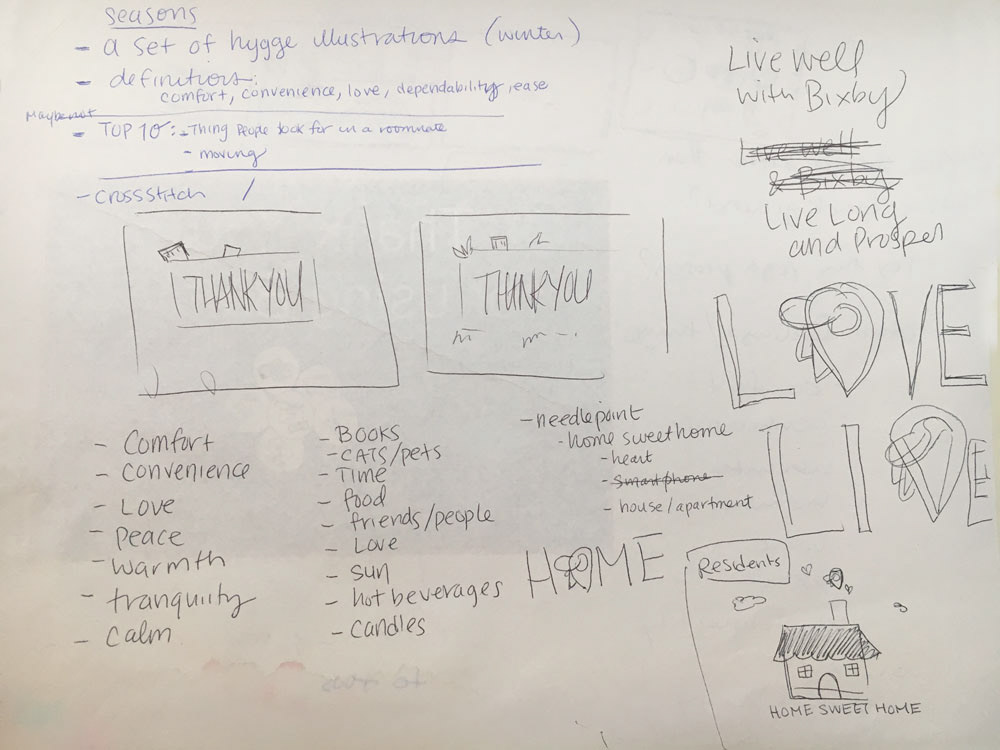 seasons
- a set of hygge illustrations (winter)
- definitions:
comfort, convenience, love, dependability, ease
Maybe not
- TOP 10: - Thing People look for in a roommate
- moving
- Crosstitch /
THANK YOU
THANK YOU
- Comfort
- convenience
- Love
- peace
- warmth
- tranquility
- calm
- BOOKS
- CATS/pets
- Time
- food
- friends/people
- Love
- sun
- hot beverages
- candles
- needlepoint
- home sweet home
- heart
- smartphone
- house/apartment
HOME
Live well
with Bixby
Live well
& Bixby
Live Long
and Prosper
LOVE
LIVE
Residents
HOME SWEET HOME